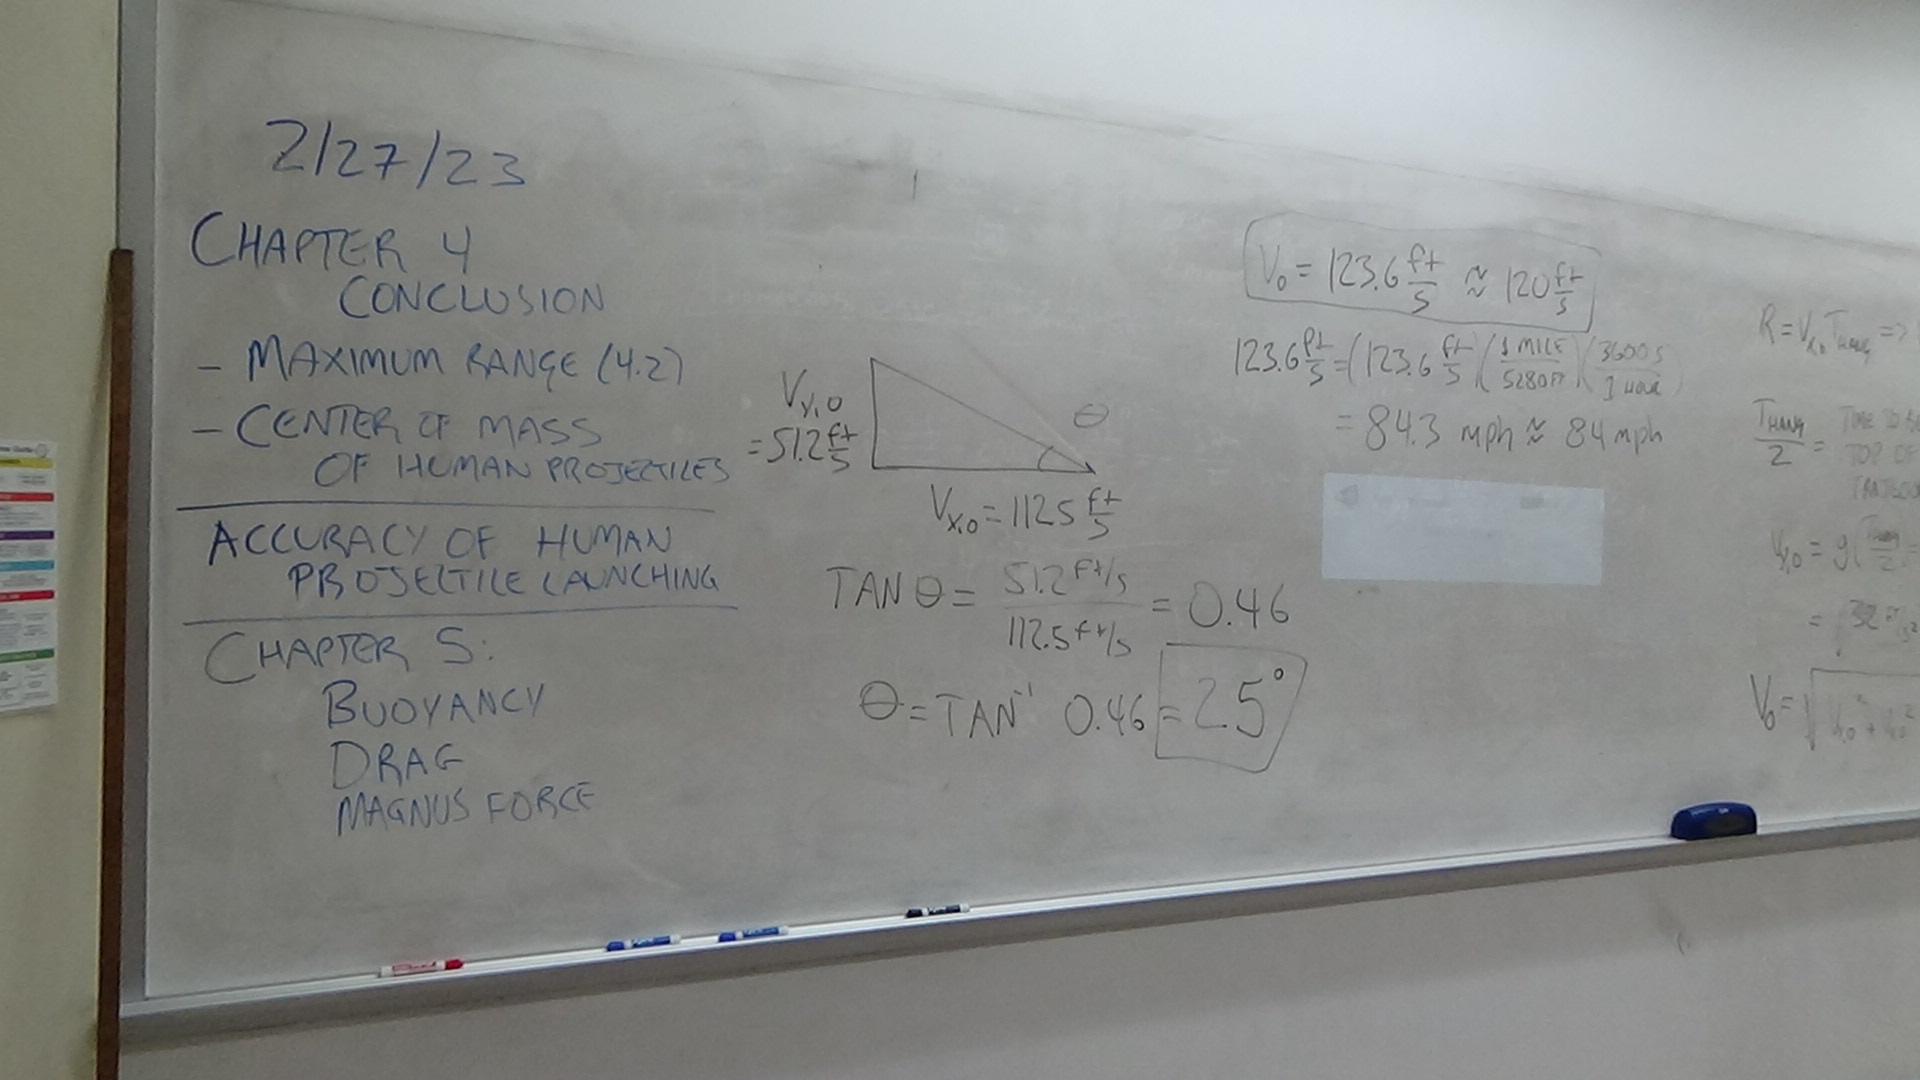 2/27/23
CHAPTER 4
CONCLUSION
- MAXIMUM RANGE (4.2)
- CENTER OF MASS
OF HUMAN PROJECTILES
ACCURACY OF HUMAN
PROJECTILE LAUNCHING
CHAPTER 5:
BUOYANCY
DRAG
MAGNUS FORCE
Vy,0
= 51.2 ft/s
θ
Vx,0 = 112.5 ft/s
TAN θ = 51.2 ft/s / 112.5 ft/s = 0.46
θ = TAN⁻¹ 0.46 = 25°
V0 = 123.6 ft/s ≈ 120 ft/s
123.6 ft/s = (123.6 ft/s)(1 MILE / 5280 FT)(3600 s / 1 HOUR)
= 84.3 mph ≈ 84 mph
R = Vx,0 THANG =>
THANG / 2 = TIME TO
TOP OF
Vy,0 = g(THANG / 2) =
= 32 ft/s²
V0 = √Vx,0² + Vy,0²